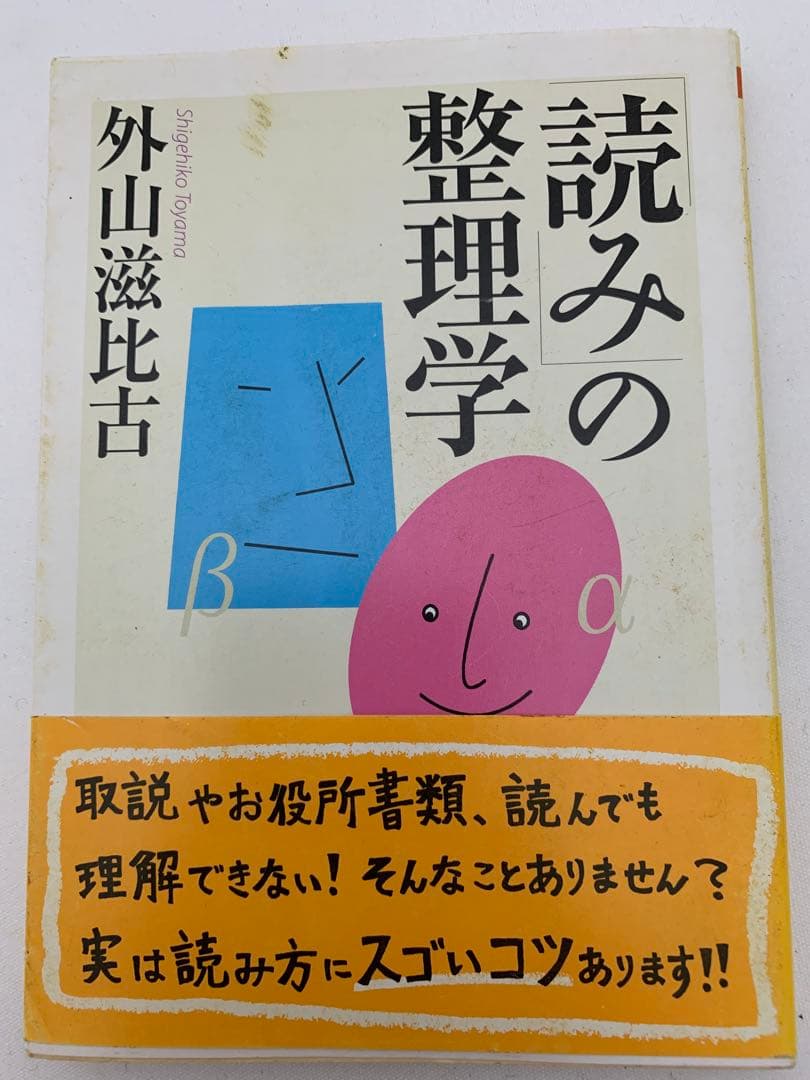 「読み」の
整理学
外山滋比古
Shigehiko Toyama
β
α
取説やお役所書類、読んでも
理解できない！そんなことありません？
実は読み方にスゴいコツあります!!